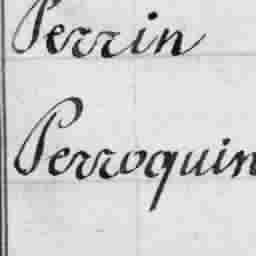 Perrin
Perroquin